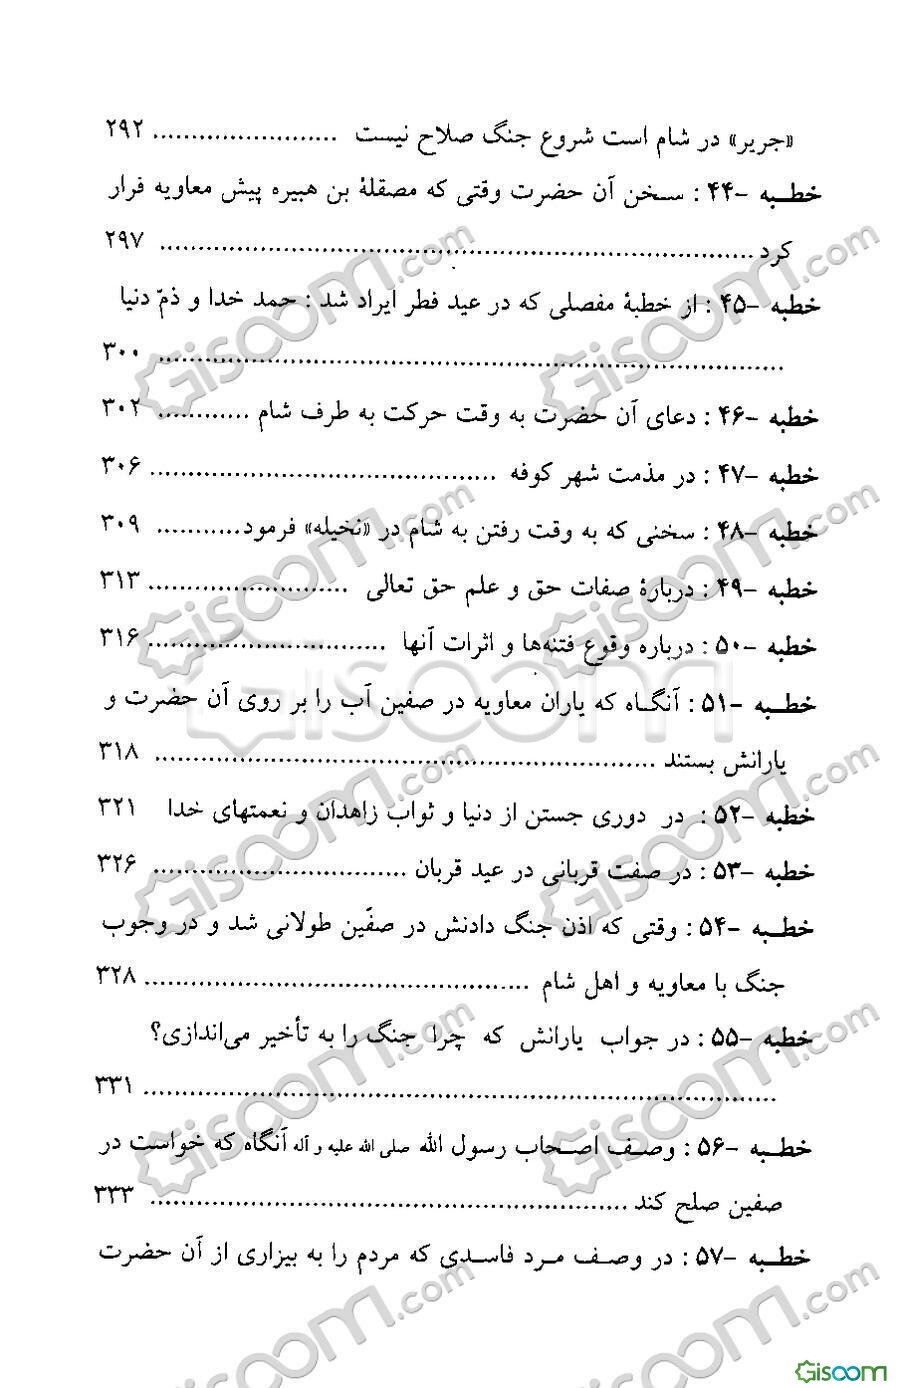 «جریر» در شام است شروع جنگ صلاح نیست ........................ ۲۹۲
خطبه -۴۴ : سخن آن حضرت وقتی که مصقلهٔ بن هبیره پیش معاویه فرار
کرد ............................................................................... ۲۹۷
خطبه -۴۵ : از خطبهٔ مفصلی که در عید فطر ایراد شد : حمد خدا و ذمّ دنیا
................................................................................... ۳۰۰
خطبه -۴۶ : دعای آن حضرت به وقت حرکت به طرف شام ............ ۳۰۲
خطبه -۴۷ : در مذمت شهر کوفه ............................................. ۳۰۶
خطبه -۴۸ : سخنی که به وقت رفتن به شام در «نخیله» فرمود........... ۳۰۹
خطبه -۴۹ : دربارهٔ صفات حق و علم حق تعالی .......................... ۳۱۳
خطبه -۵۰ : درباره وقوع فتنه‌ها و اثرات آنها ............................... ۳۱۶
خطبه -۵۱ : آنگاه که یاران معاویه در صفین آب را بر روی آن حضرت و
یارانش بستند .................................................................. ۳۱۸
خطبه -۵۲ : در دوری جستن از دنیا و ثواب زاهدان و نعمتهای خدا ۳۲۱
خطبه -۵۳ : در صفت قربانی در عید قربان ................................. ۳۲۶
خطبه -۵۴ : وقتی که اذن جنگ دادنش در صفّین طولانی شد و در وجوب
جنگ با معاویه و اهل شام .................................................. ۳۲۸
خطبه -۵۵ : در جواب یارانش که چرا جنگ را به تأخیر می‌اندازی؟
................................................................................... ۳۳۱
خطبه -۵۶ : وصف اصحاب رسول الله صلی الله علیه و آله آنگاه که خواست در
صفین صلح کند ............................................................... ۳۳۳
خطبه -۵۷ : در وصف مرد فاسدی که مردم را به بیزاری از آن حضرت
Gisoom